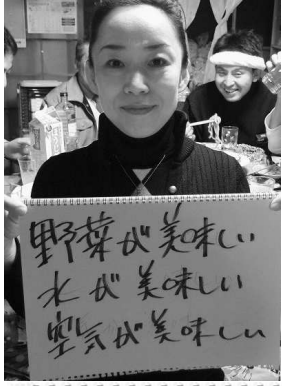 野菜が美味しい
水が美味しい
空気が美味しい